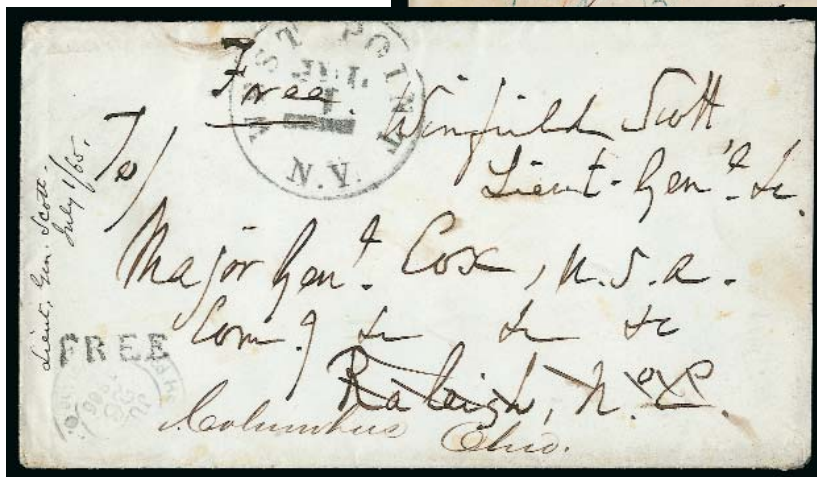 WEST POINT
JUL
1
N.Y.
Free. Winfield Scott
Lieut-Gen'l. &c.
To/
Major Gen'l. Cox, U.S.A.
Com'g &c &c &c
Raleigh, N.C.
Columbus
Ohio.
FREE
Lieut. Gen. Scott.
July 1/65.